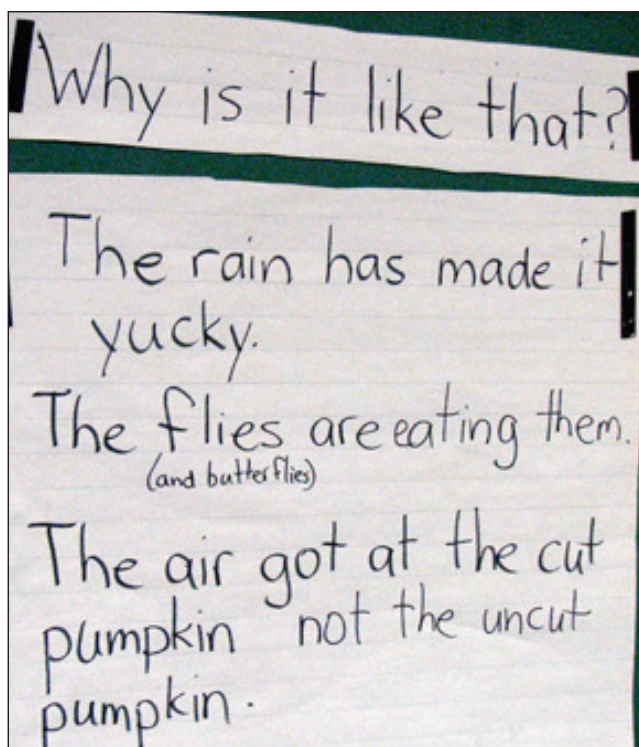 Why is it like that?
The rain has made it
yucky.
The flies are eating them.
(and butterflies)
The air got at the cut
pumpkin not the uncut
pumpkin.